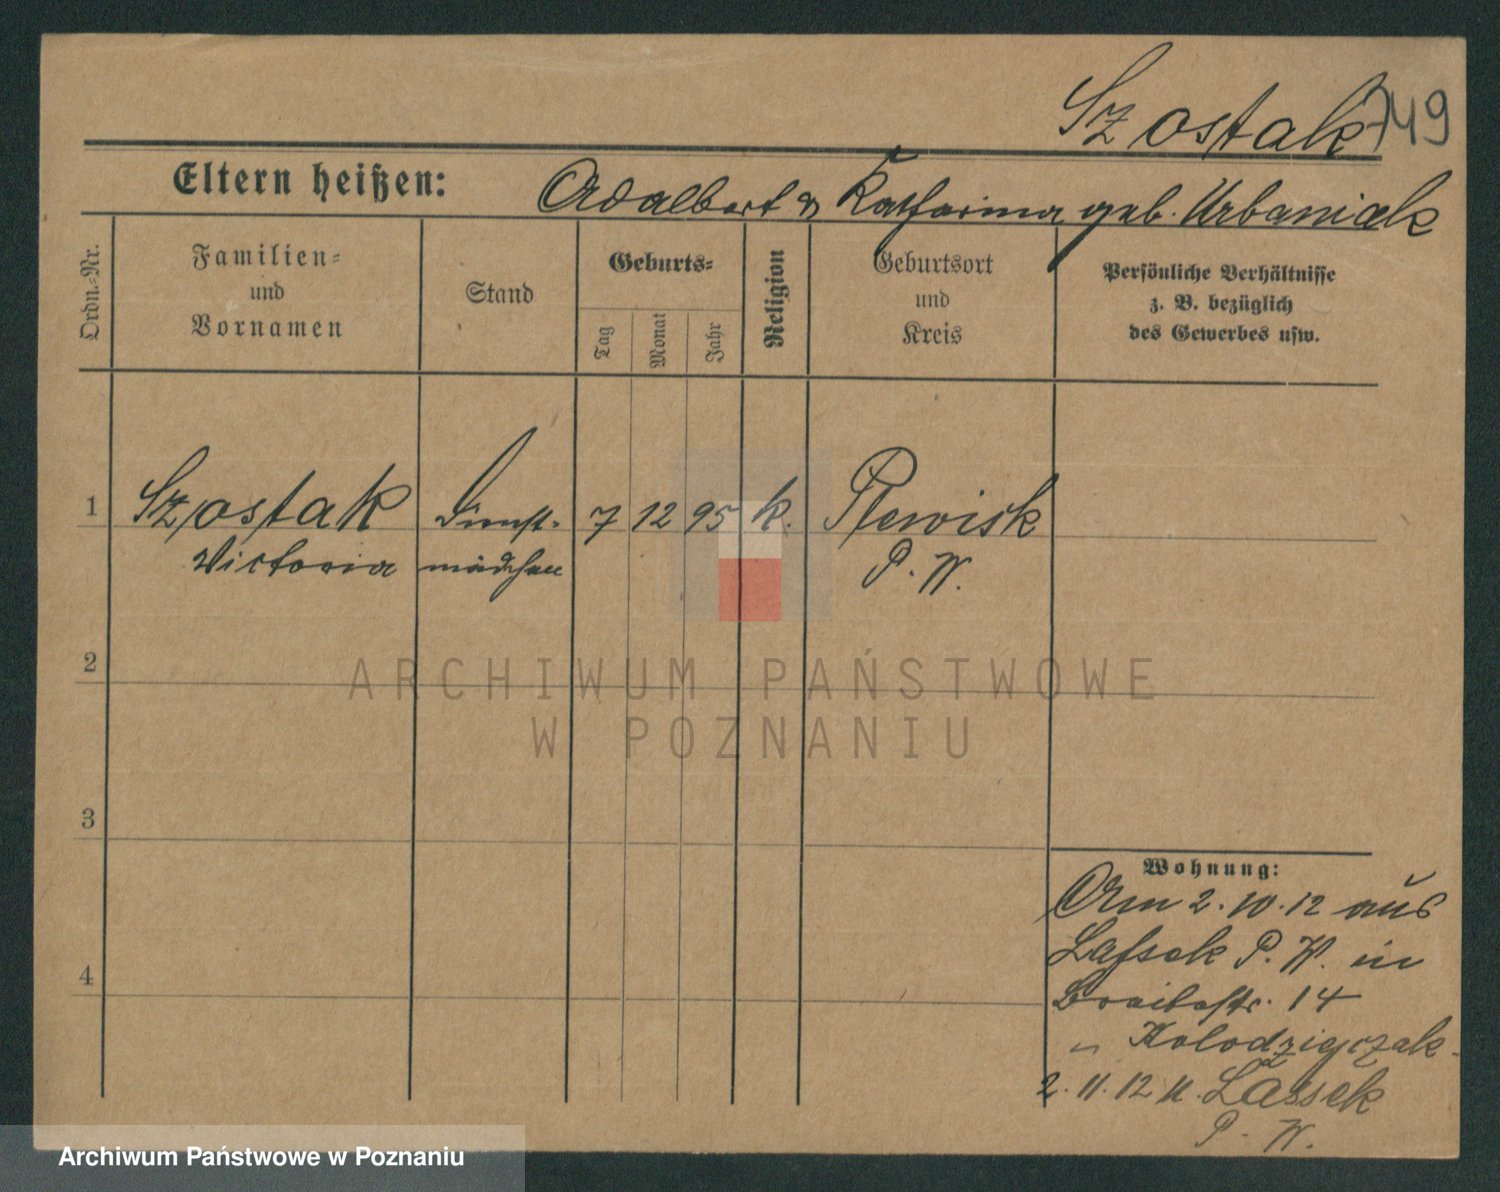 Szostak 749
Eltern heißen: Adalbert & Katharina geb. Urbaniak
Ordn.-Nr.
Familien-
und
Vornamen
Stand
Geburts-
Tag
Monat
Jahr
Religion
Geburtsort
und
Kreis
Persönliche Verhältnisse
z. B. bezüglich
des Gewerbes usw.
1 Szostak Dienst- 7 12 95 k. Plewisk
Victoria mädchen P. W.
2
3
4
Wohnung:
Am 2.10.12 aus
Lassek P. W. in
Breitestr. 14
" Kolodzigczak
2.11.12 n. Lassek
P. W.
ARCHIWUM PAŃSTWOWE
W POZNANIU
Archiwum Państwowe w Poznaniu